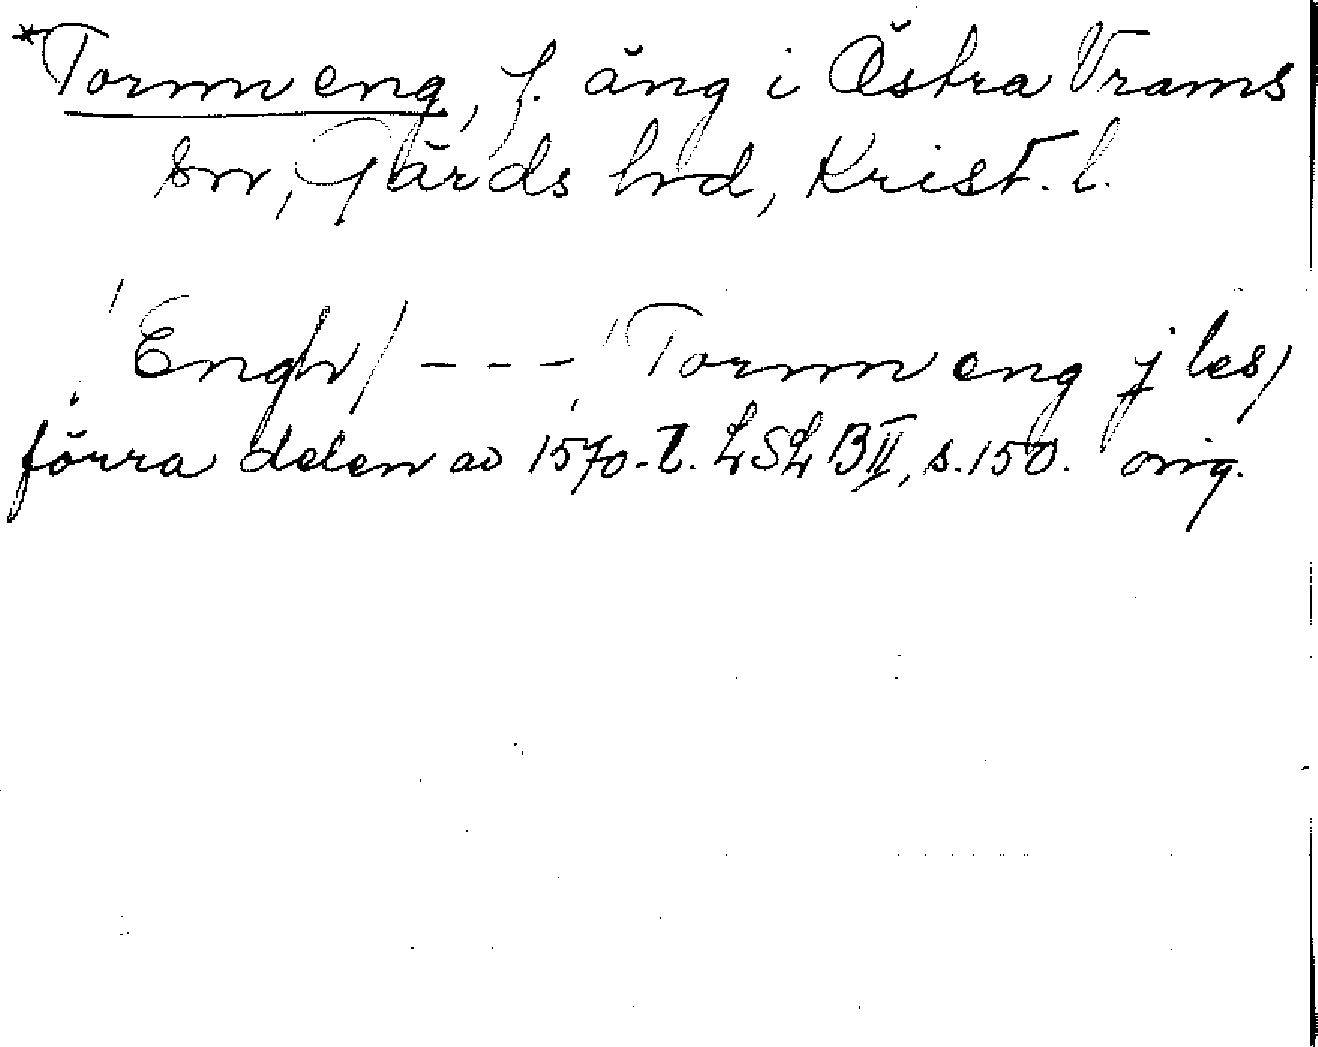 *Tormn eng, f. äng i Östra Vrams
sn, Gärds hrd, Krist. l.
/Engh/ - - - Tormn eng j les/
förra delen av 1570-t. LSL BII, s. 150. orig.